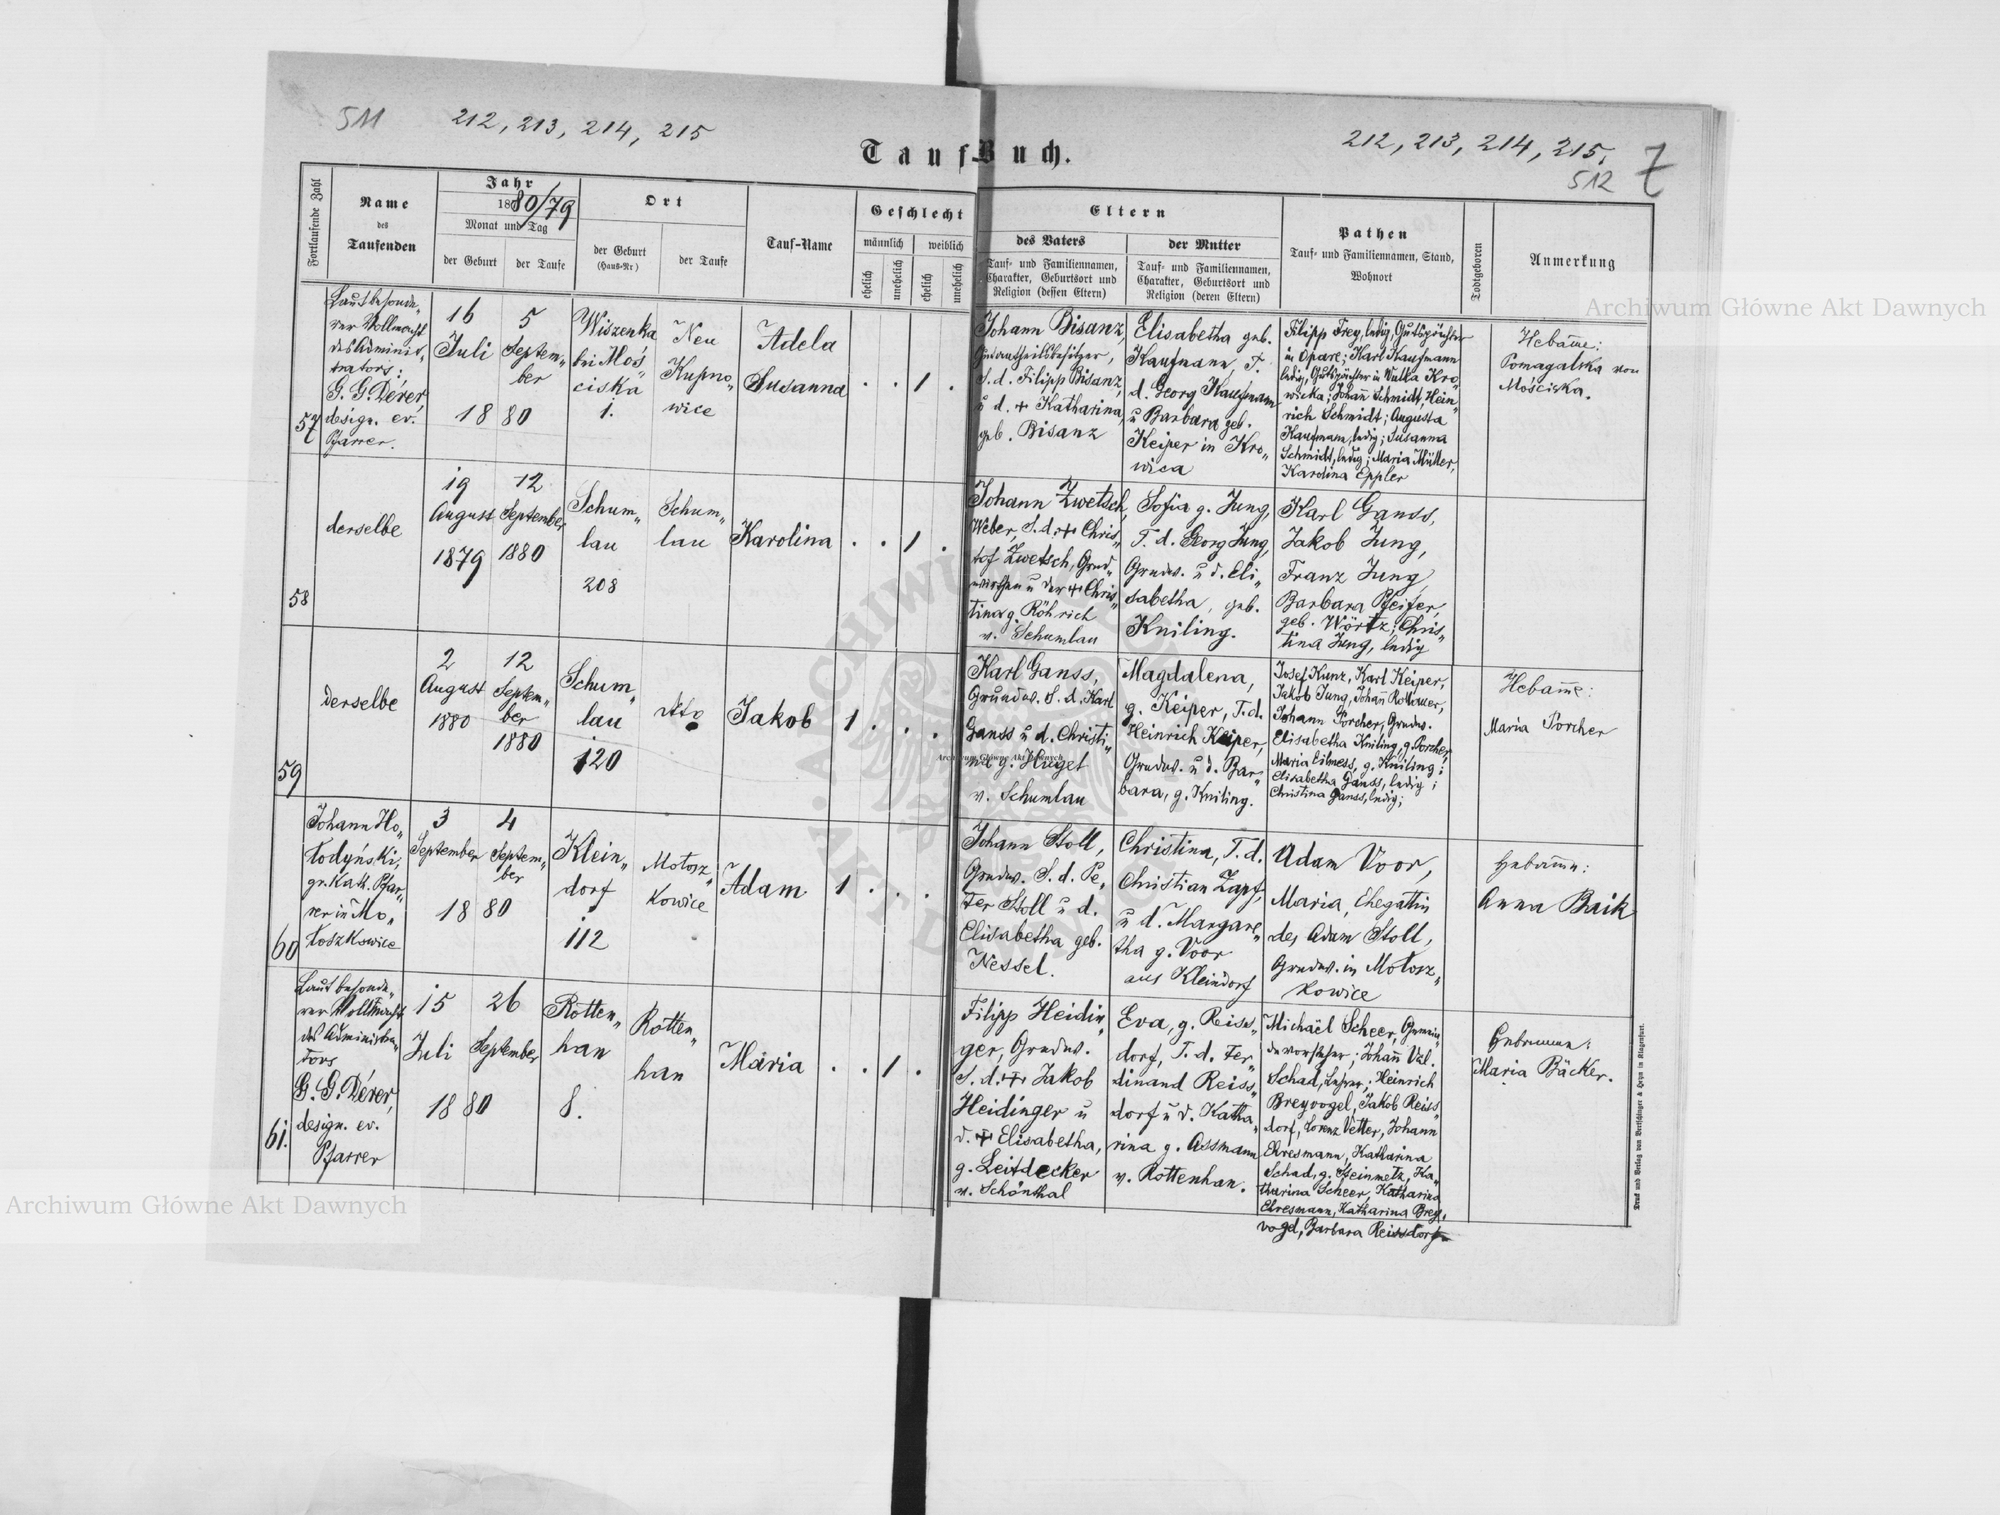 511
212, 213, 214, 215
212, 213, 214, 215,
512
7
TaufBuch.
Fortlaufende Zahl
Name
des
Taufenden
Jahr
1880/79
Monat und Tag
der Geburt
der Taufe
Ort
der Geburt
(Haus-Nr)
der Taufe
Tauf-Name
Geschlecht
männlich
weiblich
ehelich
unehelich
ehelich
unehelich
Eltern
des Vaters
Tauf- und Familiennamen,
Charakter, Geburtsort und
Religion (dessen Eltern)
der Mutter
Tauf- und Familiennamen,
Charakter, Geburtsort und
Religion (deren Eltern)
Pathen
Tauf- und Familiennamen, Stand,
Wohnort
Todtgeboren
Anmerkung
57
Laut besonde„
rer Vollmacht
des Adminis„
trators:
G. G. Dérer,
design. ev.
Pfarrer.
16
Juli
5
Septem„
ber
18 80
Wiszenka
bei Moś„
ciska
1.
Neu
Kupno„
wice
Adela
Susanna
. . 1 .
Johann Bisanz,
Gutsantheilsbesitzer,
S. d. Filipp Bisanz,
u d. + Katharina,
geb. Bisanz
Elisabetha geb.
Kaufmann, T.
d. Georg Kaufmann
u Barbara geb.
Keiper in Kro„
wica
Filipp Frey, ledig, Gutspächter
in Opare; Karl Kaufmann
ledig, Gutspächter in Wulka Kro„
wicka; Johann Schmidt, Hein„
rich Schmidt; Augusta
Kaufmann, ledig; Susanna
Schmidt, ledig; Maria Müller,
Karolina Eppler
Hebam̄e:
Pomagalska von
Mościska.
58
derselbe
19
August
1879
12
September
1880
Schum„
lau
208
Schum„
lau
Karolina
. . 1 .
Johann Zwetsch,
Weber, S. d. + Chris„
tof Zwetsch, Grud„
wirthen u der + Chris„
tina g. Röhrich
v. Schumlau
Sofia g. Jung,
T. d. Georg Jung,
Grudw. u d. Eli„
sabetha, geb.
Kniling.
Karl Ganss,
Jakob Jung,
Franz Jung,
Barbara Pfeifer,
geb. Wörtz; Chris„
tina Jung, ledig
59
derselbe
2
August
1880
12
Septem„
ber
1880
Schum„
lau
120
dtto
Jakob
1 . . .
Karl Ganss,
Grundw. S. d. Karl
Ganss u d. Christi„
na g. Huget
v. Schumlau
Magdalena,
g. Keiper, T. d.
Heinrich Keiper,
Grudw. u d. Bar„
bara, g. Kniling.
Josef Kunz, Karl Keiper,
Jakob Jung, Johan̄ Rollauer,
Johann Porcher, Grudw.
Elisabetha Kniling, g. Porcher,
Maria g. Kniling;
Elisabetha Ganss, ledig;
Christina Ganss, ledig;
Hebam̄e:
Maria Porcher
60
Johann Ho„
łodyński,
gr. kath. Pfar„
rer in Mo„
łoszkowice
3
September
4
Septem„
ber
18 80
Klein„
dorf
112
Mołosz„
kowice
Adam
1 . . .
Johann Stoll,
Grudw. S. d. Pe„
ter Stoll u d.
Elisabetha geb.
Nessel.
Christina, T. d.
Christian Zapf,
u d. Margare„
tha g. Voor
aus Kleindorf
Adam Voor,
Maria, Ehegattin
des Adam Stoll,
Grudw. in Mołosz„
kowice
Hebam̄e:
Anna Baik
61.
Laut besonde„
rer Vollmacht
des Administra„
tors
G. G. Dérer,
design. ev.
Pfarrer
15
Juli
26
September
18 80
Rotten„
han
8.
Rotten„
han
Maria
. . 1 .
Filipp Heidin„
ger, Grudw.
S. d. + Jakob
Heidinger u
d. + Elisabetha,
g. Leitdecker
v. Schönthal
Eva, g. Reiss„
dorf, T. d. Fer„
dinand Reiss„
dorf u d. Katha„
rina g. Assmann
v. Rottenhan.
Michäel Scheer, Gemein„
devorsteher; Johan̄ Val.
Schad, Lehrer; Heinrich
Breyvogel, Jakob Reiss„
dorf, Lorenz Vetter, Johann
Ehresmann, Katharina
Schad, g. Steinmetz, Ka„
tharina Scheer, Katharina
Ehresmann, Katharina Brey„
vogel, Barbara Reissdorf
Hebamme:
Maria Bäcker.
Druck und Verlag von Bertschinger & Heyn in Klagenfurt.
Archiwum Główne Akt Dawnych
Archiwum Główne Akt Dawnych
Archiwum Główne Akt Dawnych